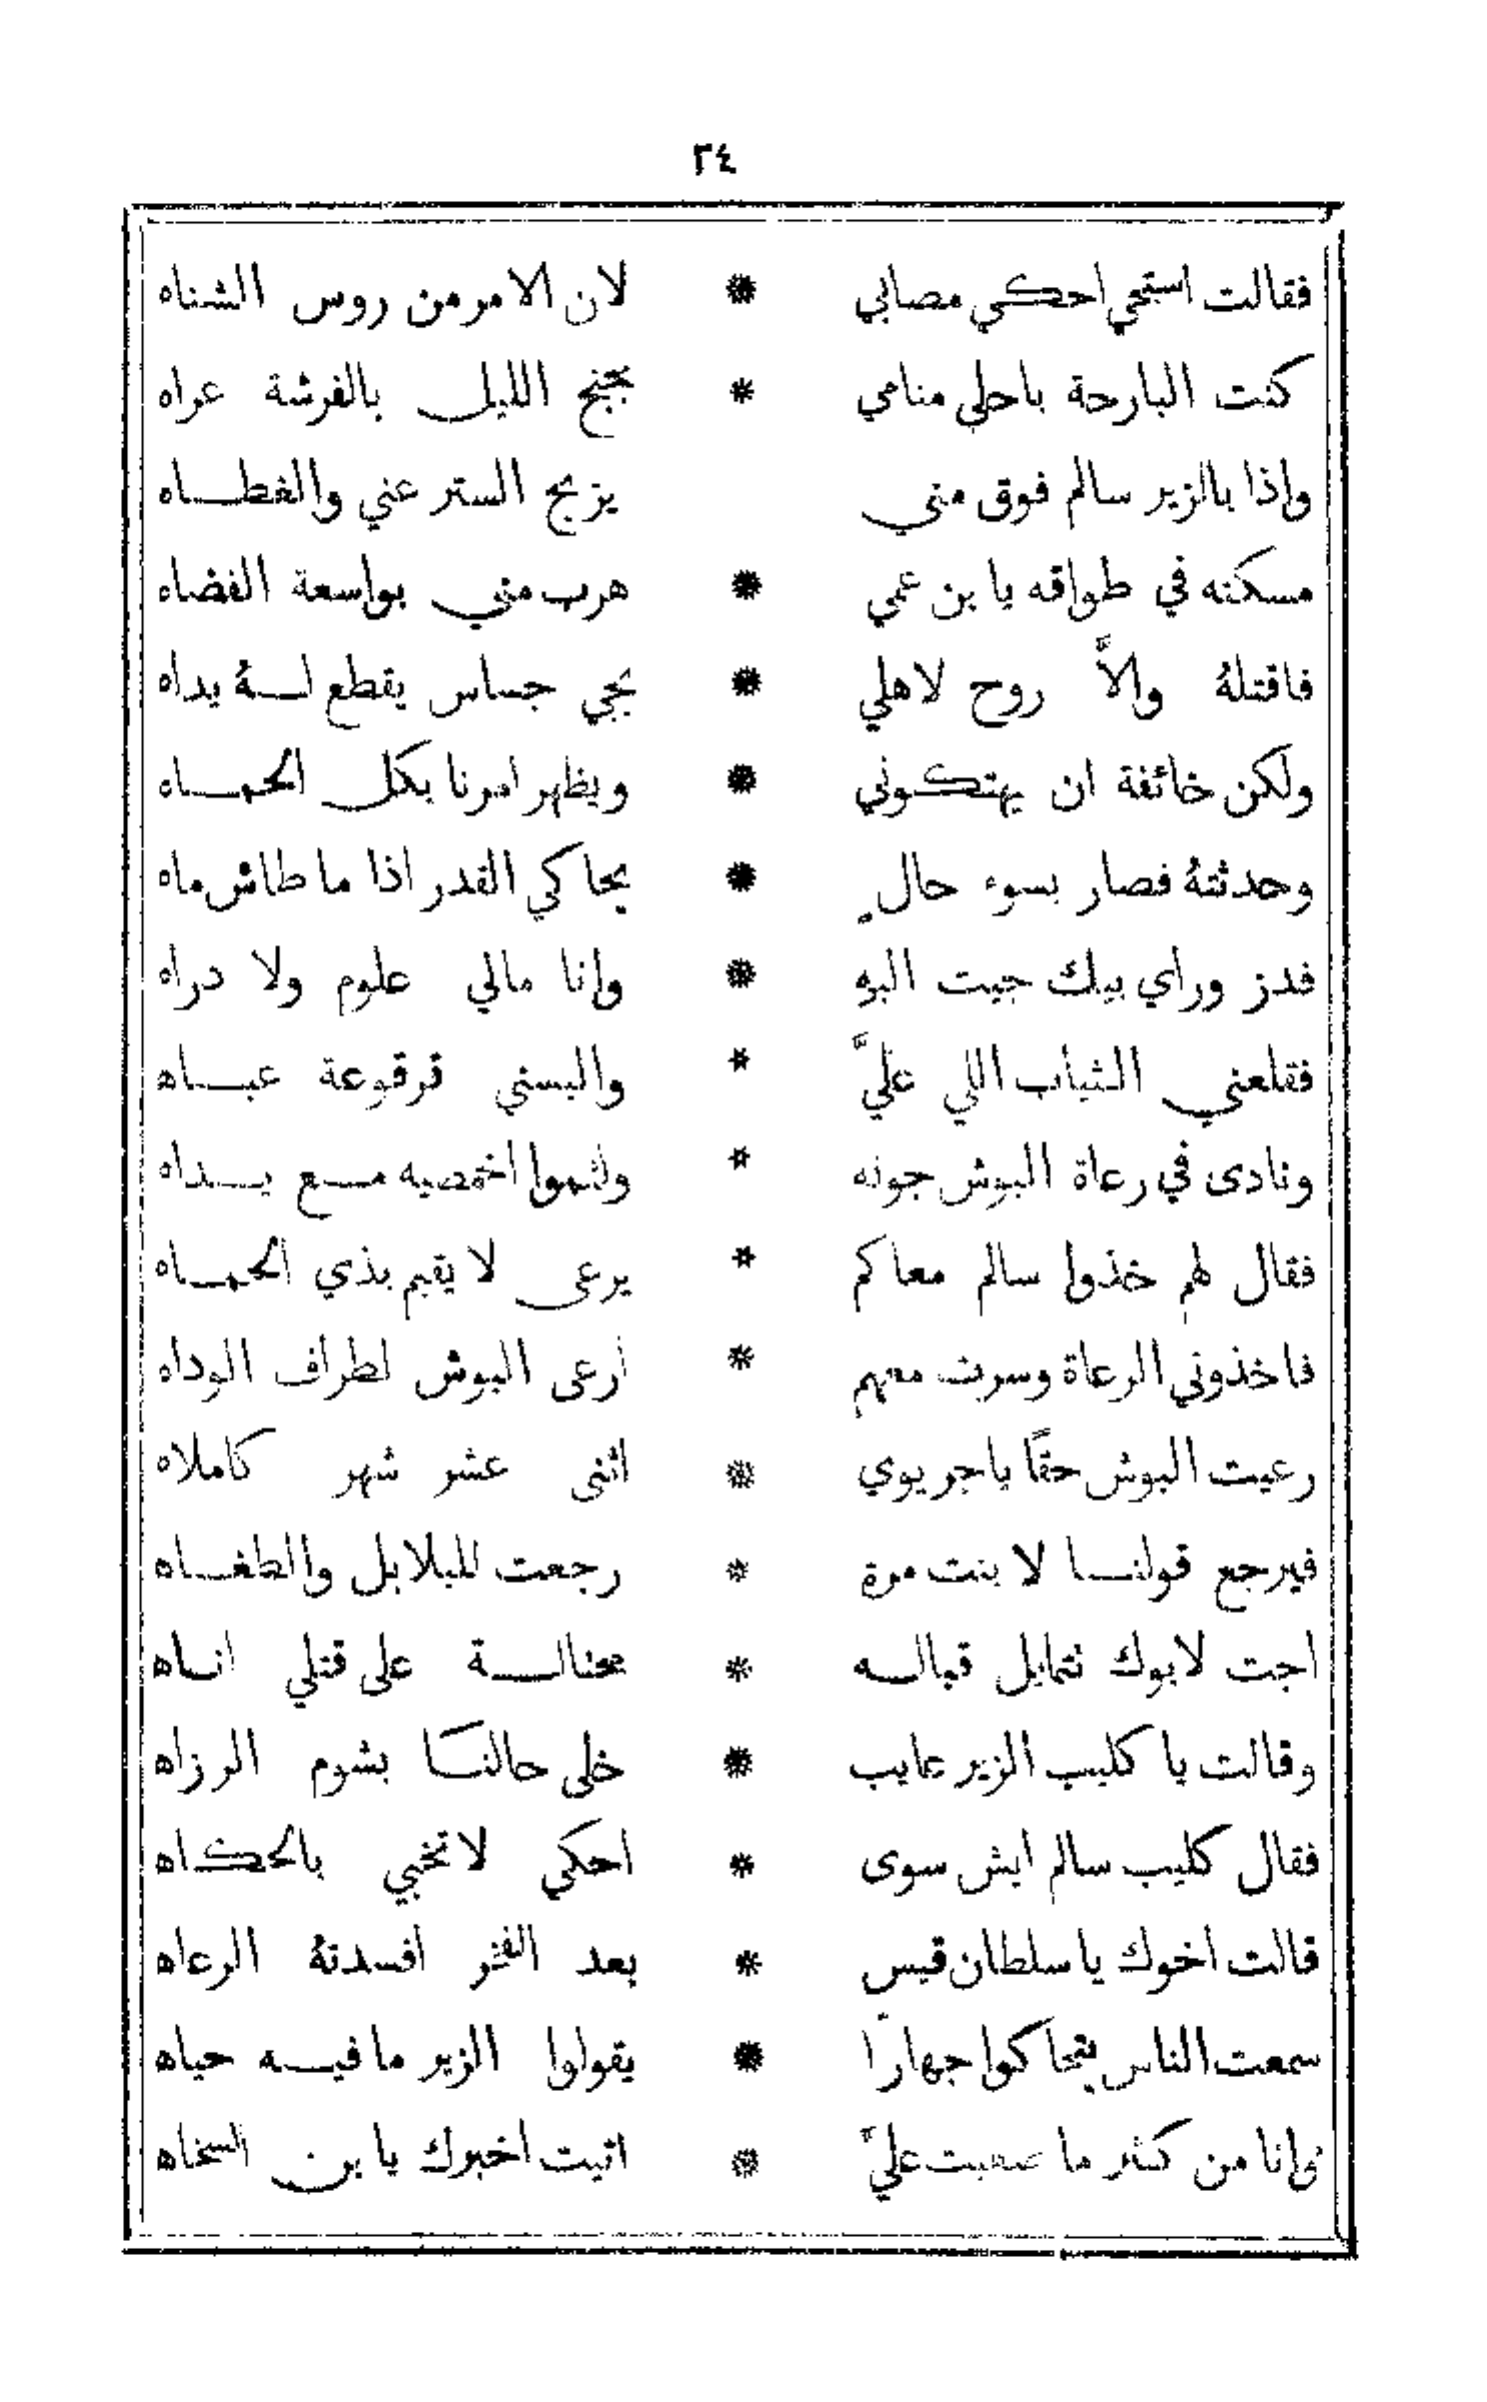 ٣٤
فقالت استحي احكي مصابي * لان الامر من روس الشناه
كنت البارحة باحلي منامي * بجنح الليل بالفرشة عراه
واذا بالزير سالم فوق مني يزيح الستر عني والغطاه
مسكنه في طواقه يا بن عمي * هرب مني بواسعة الفضاه
فاقتلهُ والاَّ روح لاهلي * يجي جساس يقطع لهُ يداه
ولكن خائفة ان يهتكوني * ويظهر امرنا بكل الحماه
وحدثتهُ فصار بسوء حالٍ * يحاكي القدر اذا ما طاش ماه
فدز وراي بيك جيت اليو * وانا مالي علوم ولا دراه
فقلعني الثياب اللي عليَّ * والبسني قرقوعة عباه
ونادى في رعاة البوش جونه * ولثموا اخمصيه مع يداه
فقال لهم خذوا سالم معاكم * يرعى لا يقيم بذي الحماه
فاخذوني الرعاة وسرت معهم * ارعى البوش لطراف الوداه
رعيت البوش حقًا يا جريوي * اثنى عشر شهر كاملاه
فيرجع قولنا لا بنت مرة * رجعت للبلابل والطغاه
اجت لابوك تتمايل قباله * محتالة على قتلي اناه
وقالت يا كليب الزير عايب * خلى حالنا بشوم الرزاه
فقال كليب سالم ايش سوى * احكي لا تخبي بالحكاه
قالت اخوك يا سلطان قيس * بعد الفخر افسدتهُ الرعاه
سمعت الناس يتحاكوا جهارًا * يقولوا الزير ما فيه حياه
وانا من كثر ما صعبت عليَّ * اتيت اخبرك يا بن السخاه